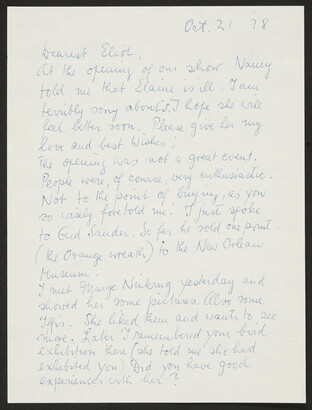 Oct. 21 78
Dearest Eliot,
At the opening of our show Nancy
told me that Elaine is ill. I am
terribly sorry about it. I hope she will
feel better soon. Please give her my
love and best wishes!
The opening was not a great event.
People were, of course, very enthusiastic.
Not to the point of buying, as you
so wisely foretold me. I just spoke
to Gerd Sander. So far he sold one print
(the Orange wreath) to the New Orlean
Museum.
I met Marge Neikrug yesterday and
showed her some pictures. Also some
She liked them and wants to see
more. Later I remembered your bird
exhibition there (she told me she had
exhibited you) Did you have good
experiences with her?